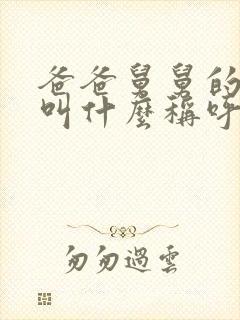 爸爸舅舅的
叫什麼稱呼
匆匆過雲